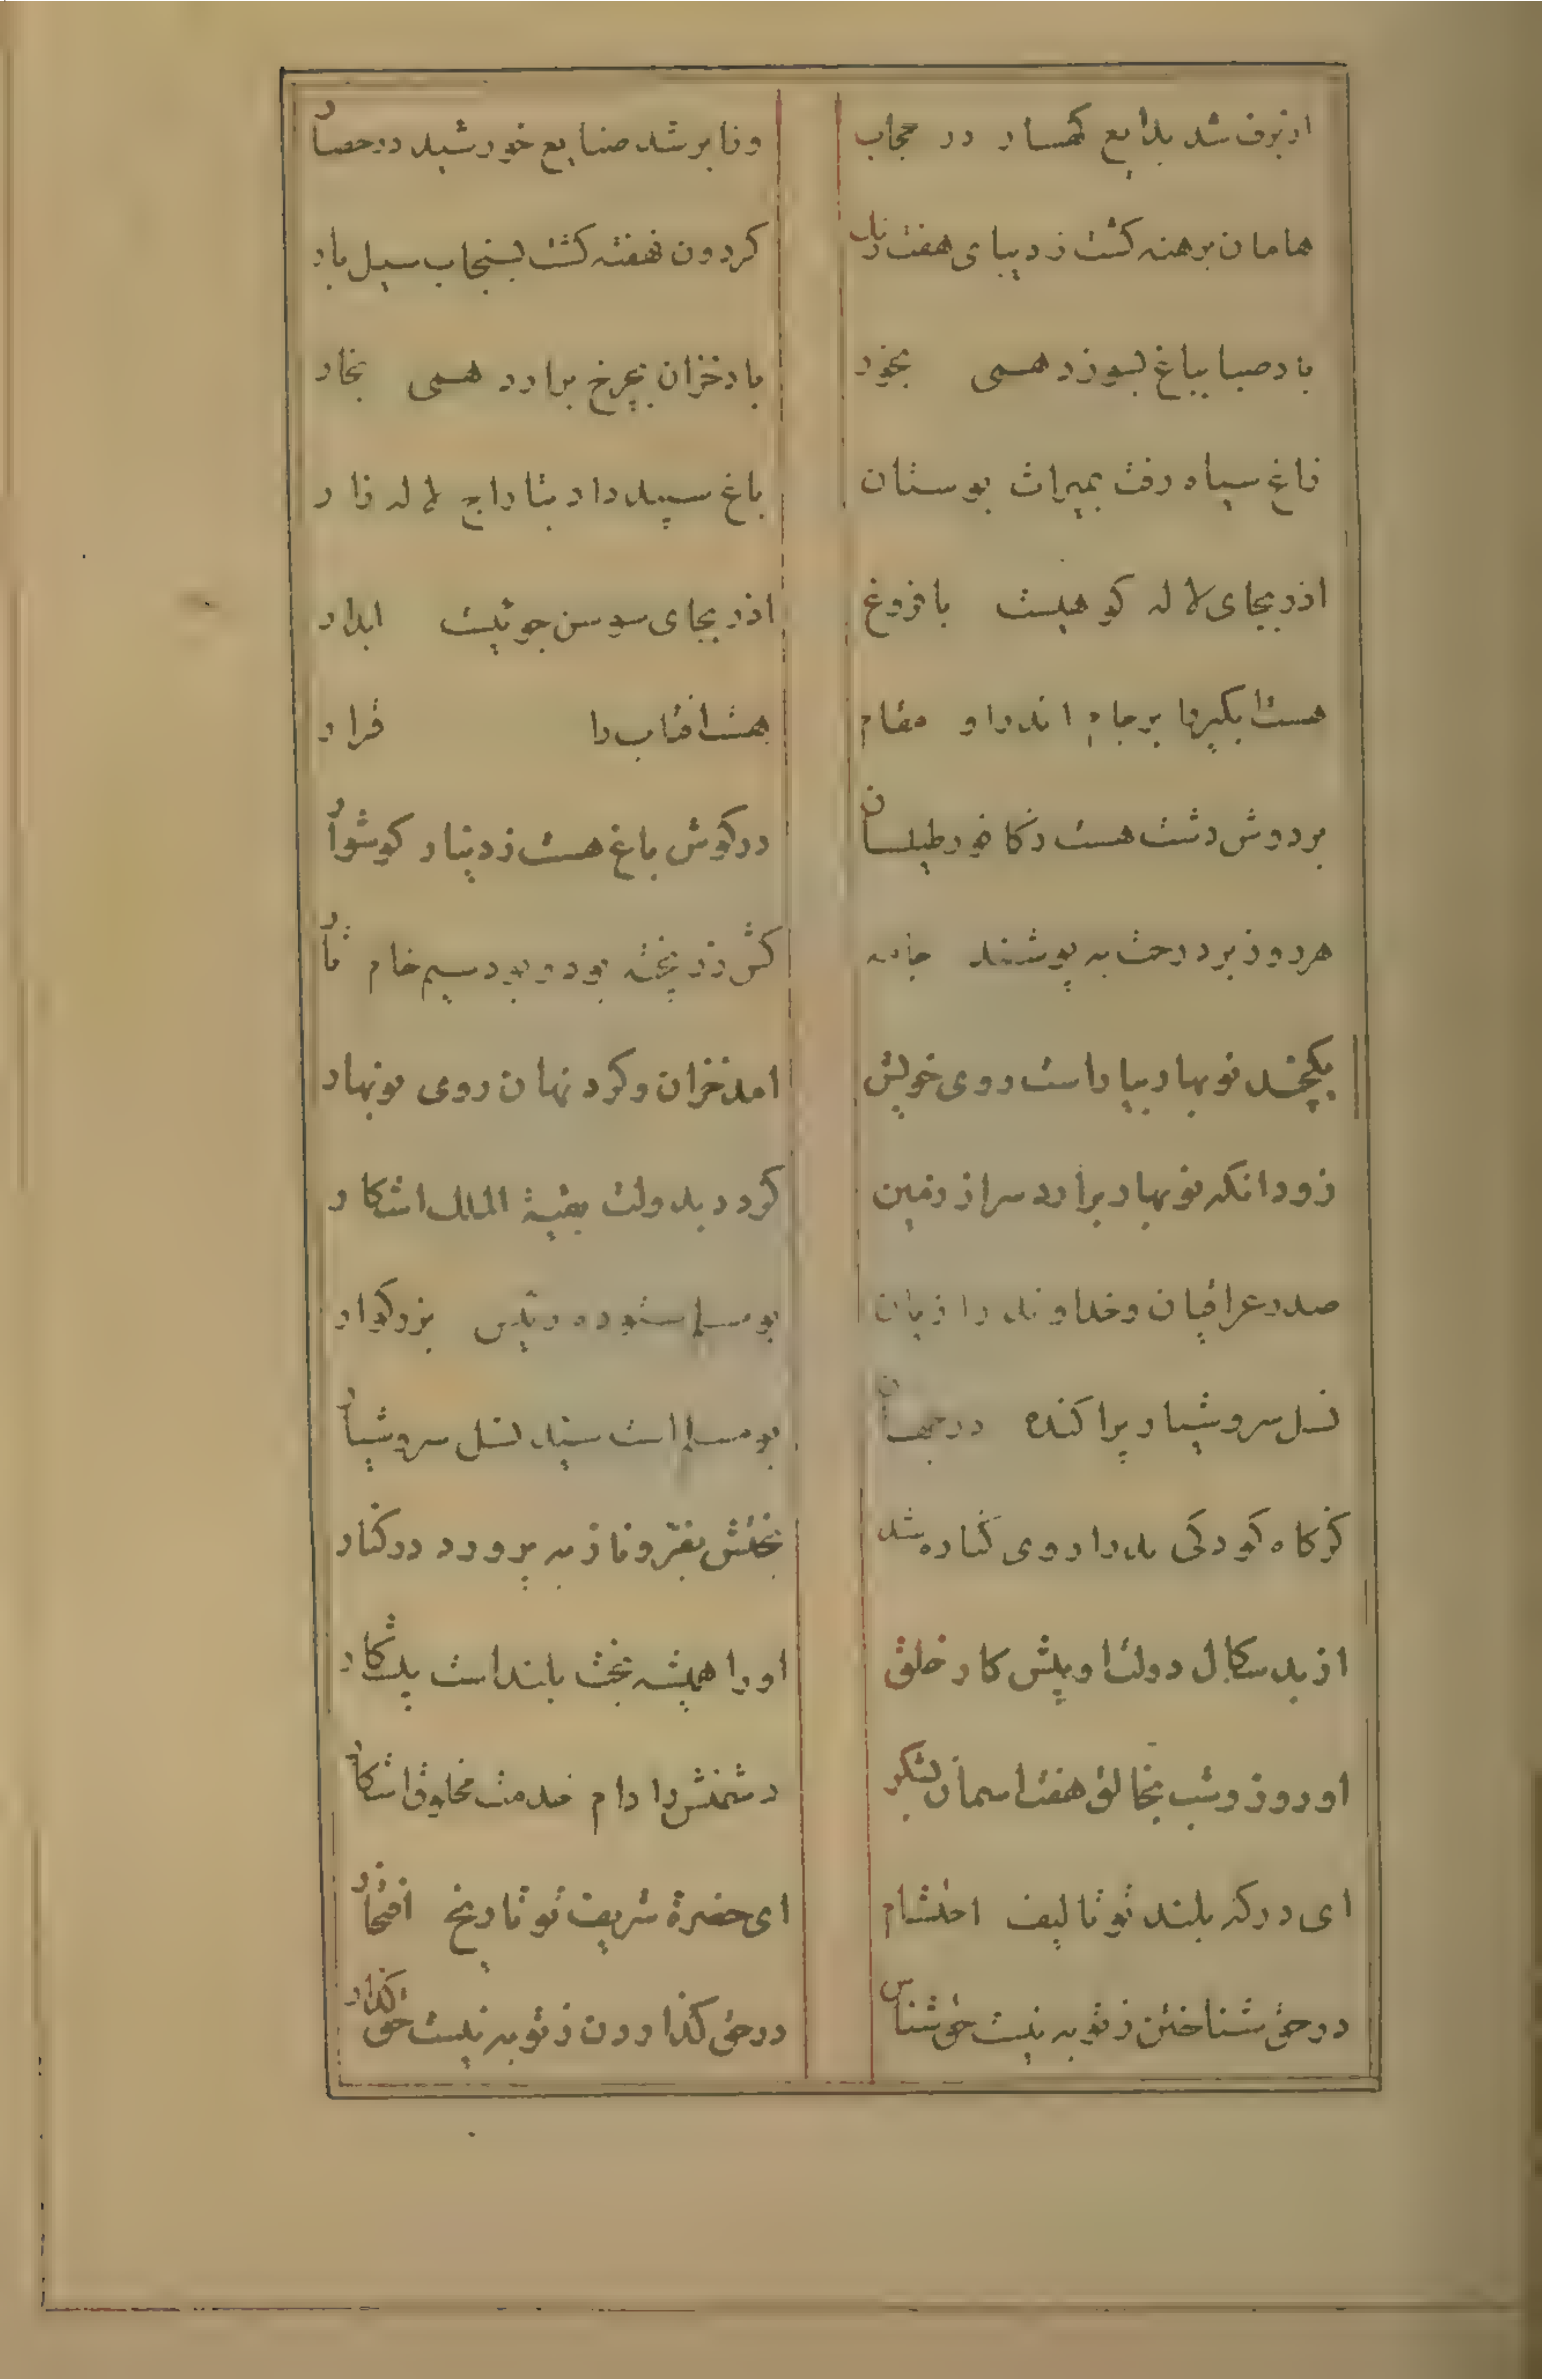 از برف شد بدایع کهسار در حجاب
وز ابر شد صنایع خورشید در حصار
هامان برهنه کشت ز دیبای هفت رنک
کردون نهفته کشت بسنجاب سیل بار
باد صبا بباغ بسوزد همی بخور
باد خزان بچرخ برارد همی بخار
زاغ سیاه رفت بمیراث بوستان
باغ سپید داد بتاراج لاله زار
اذر بجای لاله کوهیست با فروغ
اذر بجای سوسن جوئیست ابدار
هست ابکیرها بر جام اندر او مقام
هست افتاب را قرار
بر دوش دشت هست ز کافور طیلسان
در کوش باغ هست ز دینار کوشوار
هر روز بر درخت به پوشند جامه
کش زر پخته بود و بود سیم خام تار
یکچند نوبهار بیاراست روی خویش
امد خزان و کرد نهان روی نوبهار
زود انکه نوبهار برارد سر از زمین
کردد بدولت بقیة الملک اشکار
صدر عراقیان و خداوند رازیان
بو مسلم ستوده رئیس بزرکوار
نسل سروشیار پراکنده در جهان
بو مسلم است سید نسل سروشیار
کز کاه کودکی پدر از وی کناره شد
بختش بعز و ناز به پرورد در کنار
از بد سکال دولت او پیش کار خلق
او را همیشه بخت بلند است پیشکار
او روز و شب بخالق هفت اسمان بشکر
دشمنش را دام خدمت مخلوق اشکار
ای درکه بلند تو تالیف احتشام
ای حضرة شریف تو تاریخ افتخار
در حق شناختن ز تو به نیست حق شناس
در حق کذاردن ز تو به نیست حق کذار